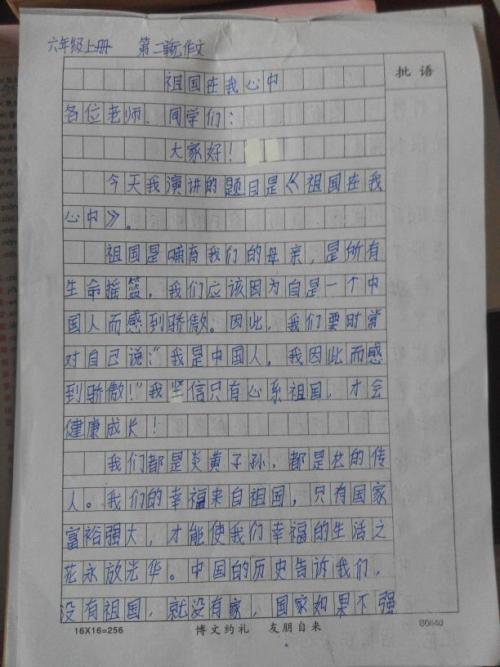 六年级上册 第二单元作文
批语
祖国在我心中
各位老师、同学们：
大家好！
今天我演讲的题目是《祖国在我
心中》。
祖国是哺育我们的母亲，是所有
生命摇篮，我们应该因为自是一个中
国人而感到骄傲。因此，我们要时常
对自己说："我是中国人，我因此而感
到骄傲！"我坚信只有心系祖国，才会
健康成长！
我们都是炎黄子孙，都是龙的传
人。我们的幸福来自祖国，只有国家
富裕强大，才能使我们幸福的生活之
花永放光华。中国的历史告诉我们，
没有祖国，就没有家，国家如果不强
16X16=256 博文约礼 友朋自来